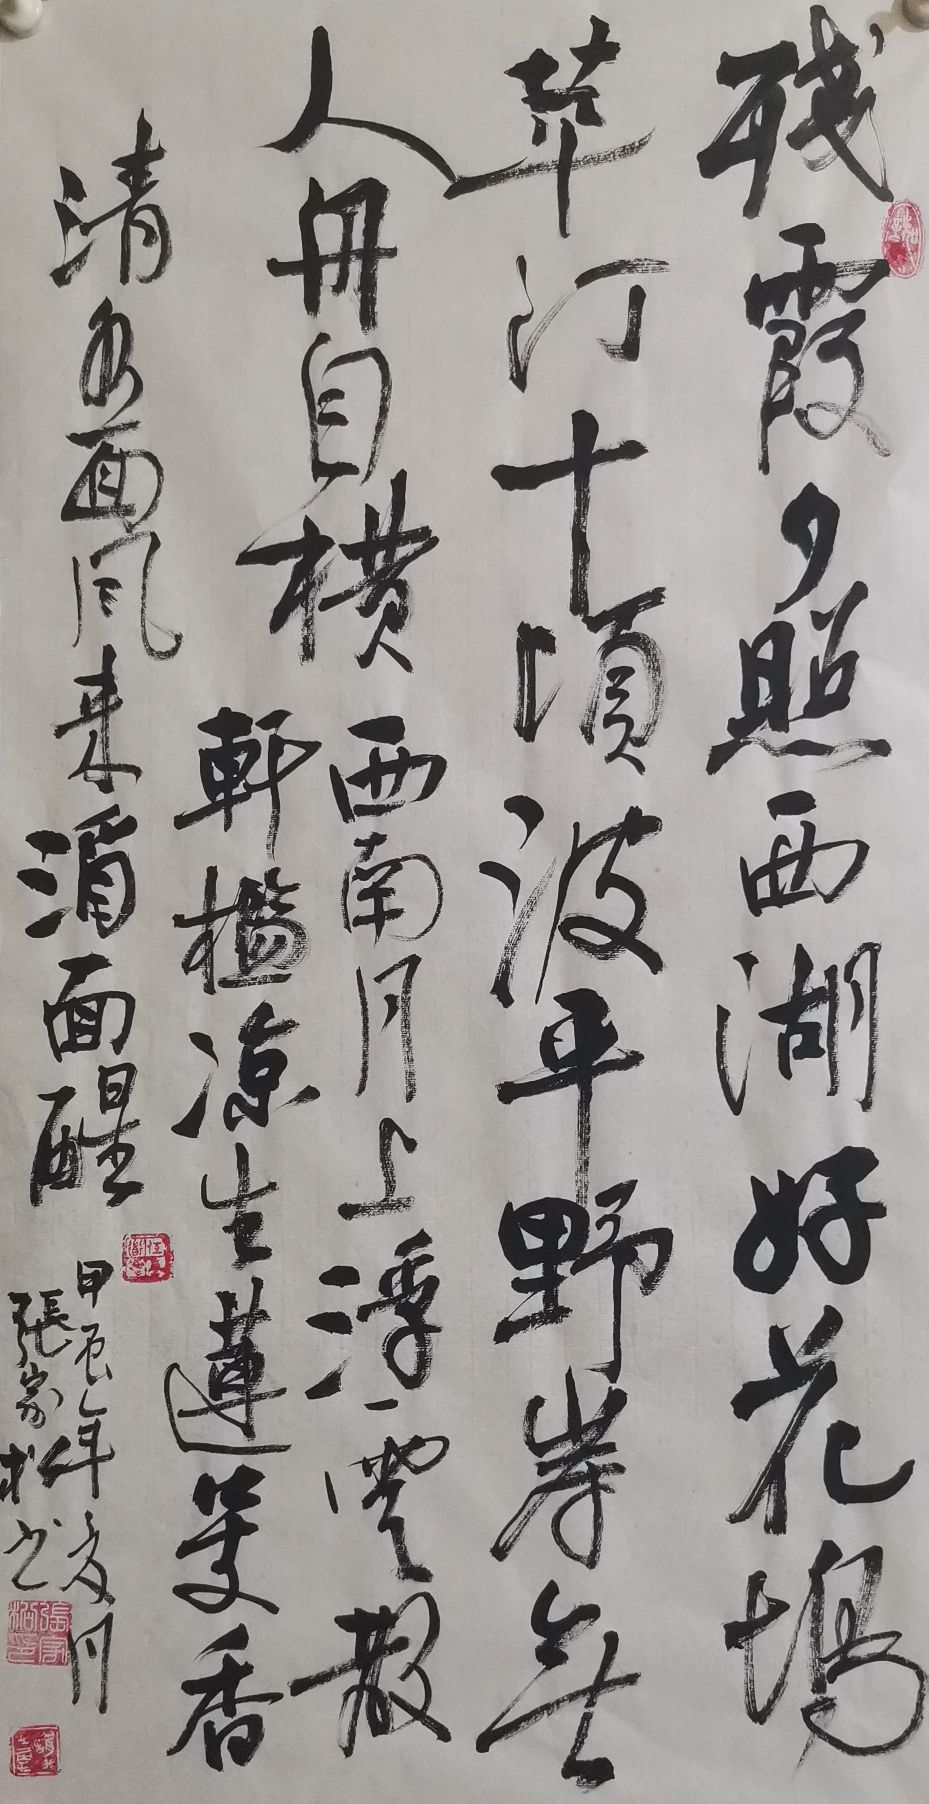 残霞夕照西湖好花塢
苹汀十頃波平野岸無
人舟自横
西南月上浮雲散
軒檻凉生蓮芰香
清水面風来酒面醒
甲辰年夏月
張家松书